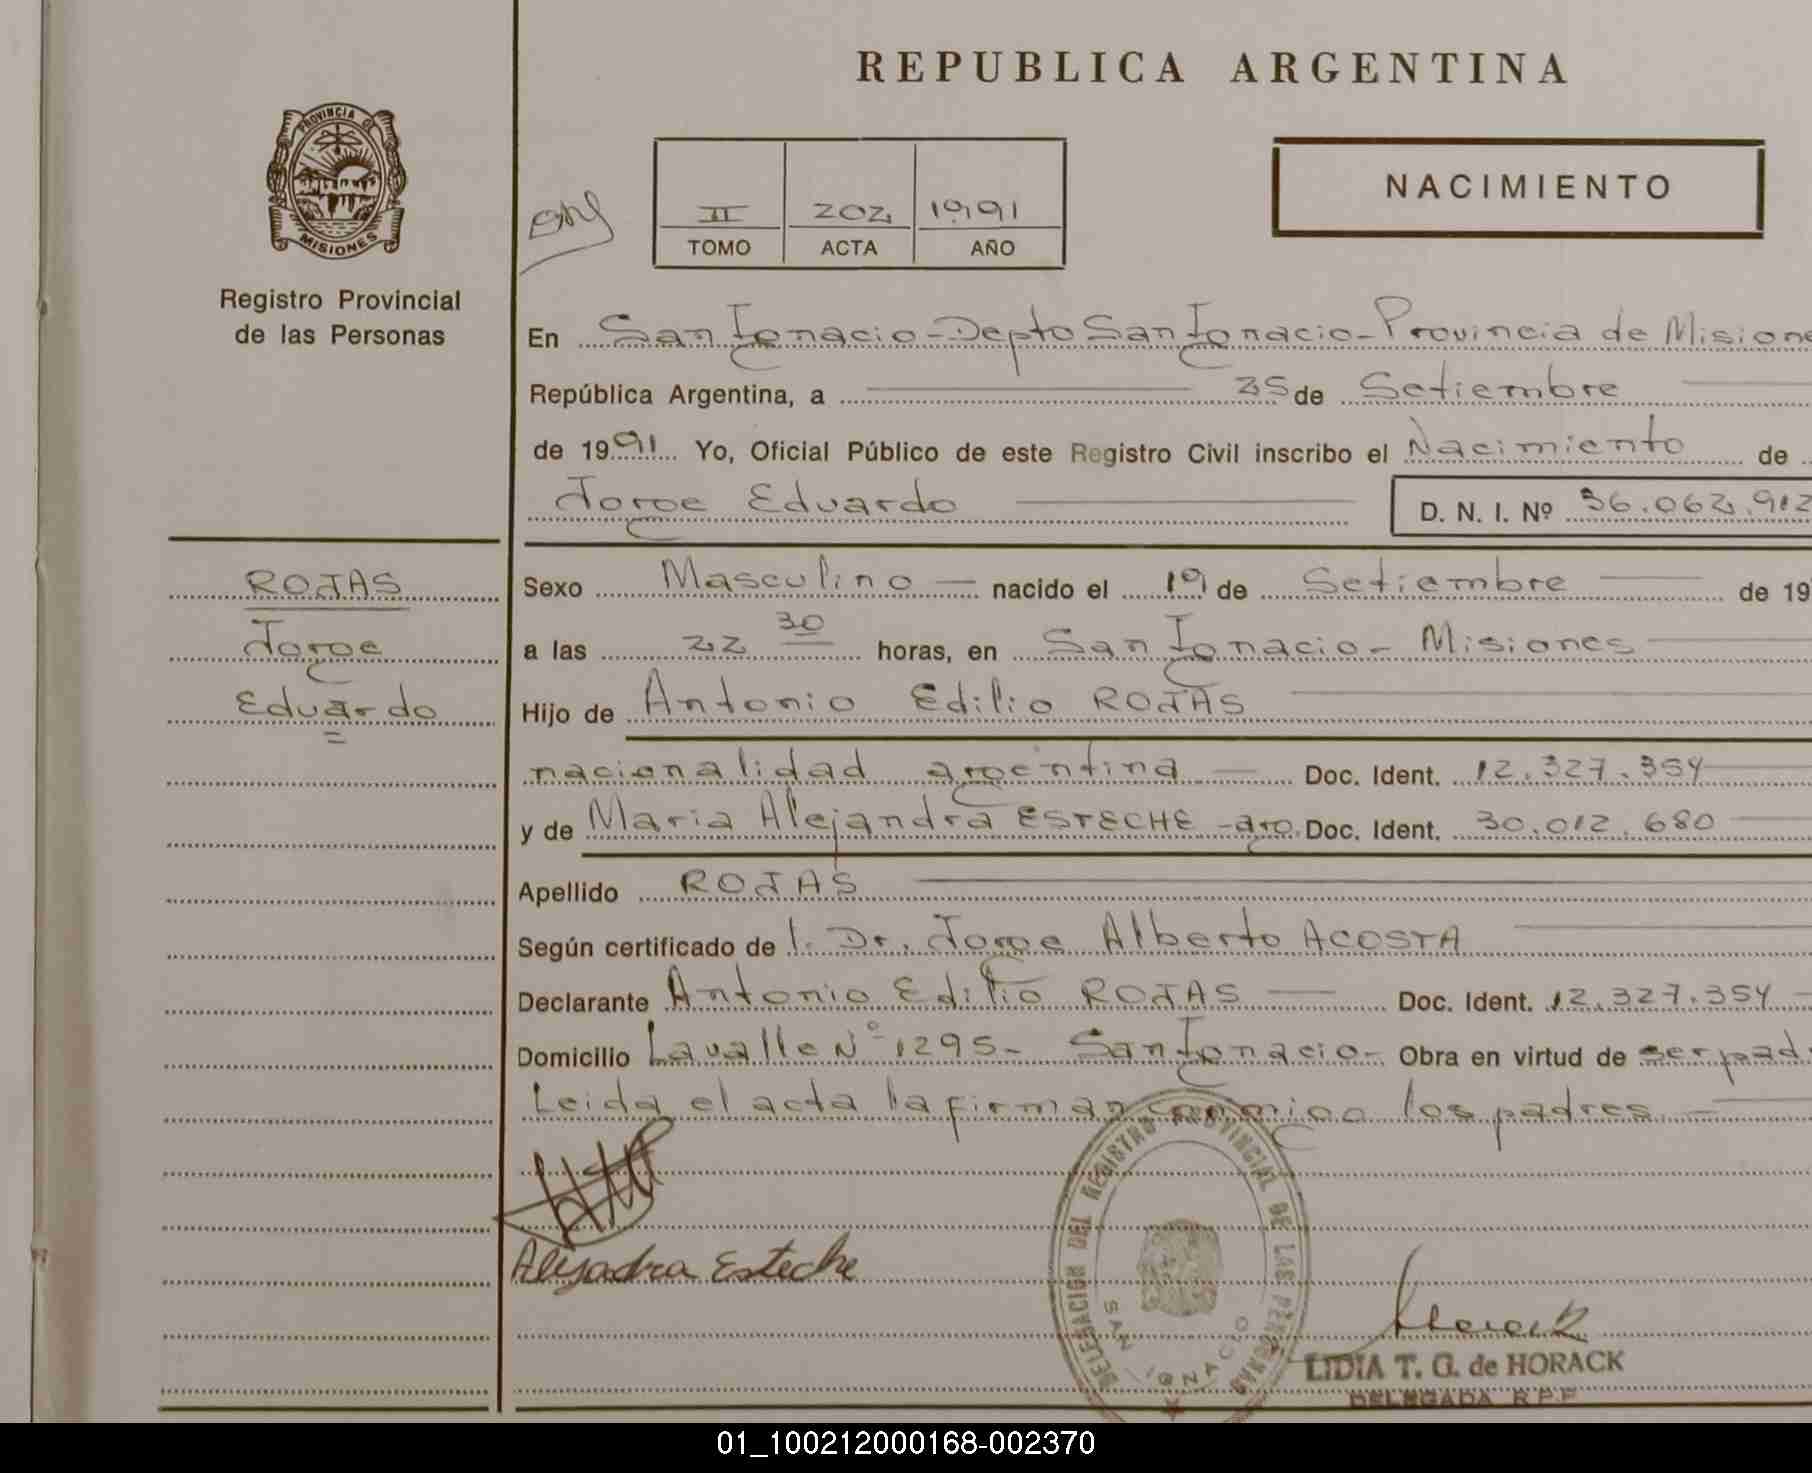 REPUBLICA ARGENTINA
PROVINCIA DE
MISIONES
Registro Provincial
de las Personas
II 202 1991
TOMO ACTA AÑO
NACIMIENTO
En San Ignacio-Depto San Ignacio-Provincia de Misione
República Argentina, a 25 de Setiembre
de 1991 Yo, Oficial Público de este Registro Civil inscribo el Nacimiento de
Jorge Eduardo D. N. I. Nº 36.062.912
ROJAS
Jorge
Eduardo
Sexo Masculino nacido el 19 de Setiembre de 19
a las 22 30 horas, en San Ignacio- Misiones
Hijo de Antonio Edilio ROJAS
nacionalidad argentina Doc. Ident. 12.327.354
y de Maria Alejandra ESTECHE -arg. Doc. Ident. 30.012.680
Apellido ROJAS
Según certificado de l. Dr. Jorge Alberto ACOSTA
Declarante Antonio Edilio ROJAS Doc. Ident. 12.327.354
Domicilio Lavalle Nº 1295- San Ignacio- Obra en virtud de ser pad
Leida el acta la firman conmigo los padres
Alejandra Esteche
DELEGACION DEL REGISTRO PROVINCIAL DE LAS PERSONAS
SAN IGNACIO
Horack
LIDIA T. G. de HORACK
DELEGADA R.P.P
01_100212000168-002370